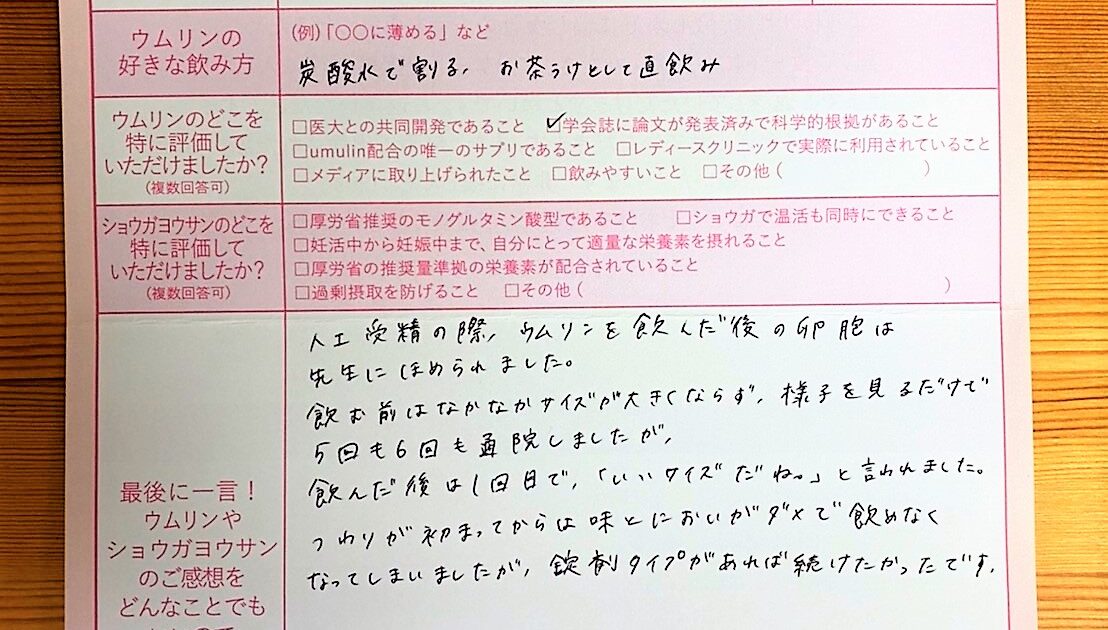 ウムリンの
好きな飲み方
(例)「〇〇に薄める」など
炭酸水で割る、お茶うけとして直飲み
ウムリンのどこを
特に評価して
いただけましたか?
(複数回答可)
□医大との共同開発であること ☑学会誌に論文が発表済みで科学的根拠があること
□umulin配合の唯一のサプリであること □レディースクリニックで実際に利用されていること
□メディアに取り上げられたこと □飲みやすいこと □その他( )
ショウガヨウサンのどこを
特に評価して
いただけましたか?
(複数回答可)
□厚労省推奨のモノグルタミン酸型であること □ショウガで温活も同時にできること
□妊活中から妊娠中まで、自分にとって適量な栄養素を摂れること
□厚労省の推奨量準拠の栄養素が配合されていること
□過剰摂取を防げること □その他( )
最後に一言!
ウムリンや
ショウガヨウサン
のご感想を
どんなことでも
人工受精の際、ウムリンを飲んだ後の卵胞は
先生にほめられました。
飲む前はなかなかサイズが大きくならず、様子を見るだけで
5回も6回も通院しましたが、
飲んだ後は1回目で、「いいサイズだね。」と言われました。
つわりが初まってからは味とにおいがダメで飲めなく
なってしまいましたが、錠剤タイプがあれば続けたかったです。